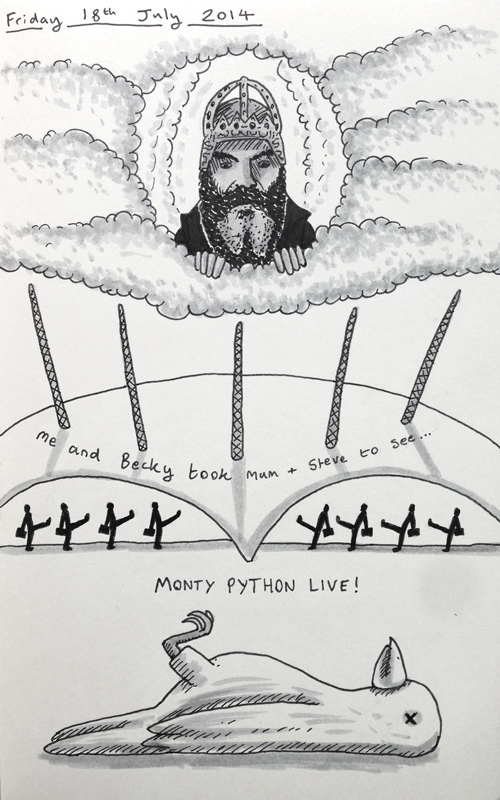 Friday 18th July 2014
Me and Becky took mum + Steve to see...
MONTY PYTHON LIVE!